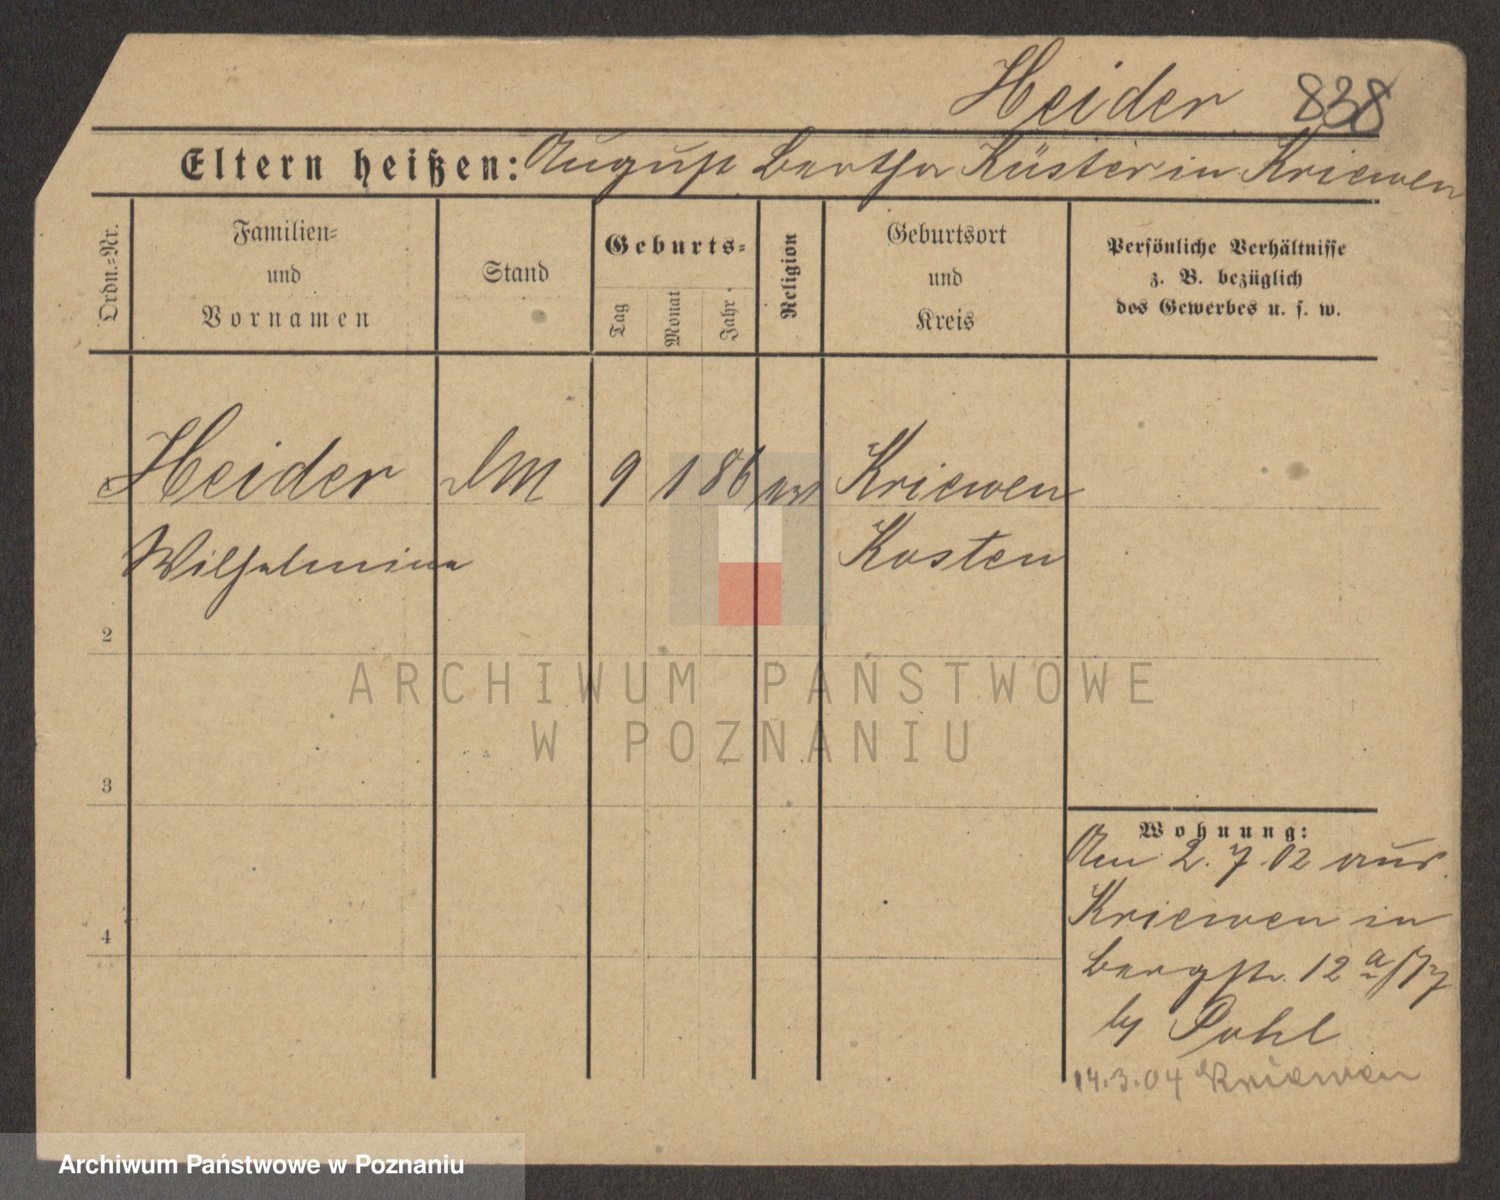 Heider 838
Eltern heißen: August Bertha Küster in Kriewen
Ordn.-Nr.
Familien-
und
Vornamen
Stand
Geburts-
Tag
Monat
Jahr
Religion
Geburtsort
und
Kreis
Persönliche Verhältnisse
z. B. bezüglich
des Gewerbes u. s. w.
Heider
9 1 86
Kriewen
Wilhelmine
Kosten
2
3
4
ARCHIWUM PAŃSTWOWE
W POZNANIU
Wohnung:
Am 2. 7. 02 aus
Kriewen in
Bergstr. 12 a
by Pohl
14.3.04 Kriewen
Archiwum Państwowe w Poznaniu